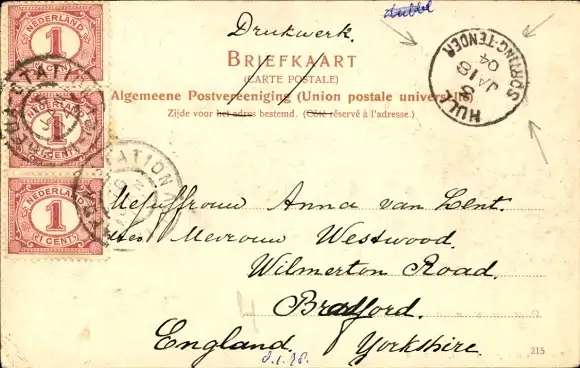 dubbel
Drukwerk.
BRIEFKAART
(CARTE POSTALE)
Algemeene Postvereeniging (Union postale universelle)
Zijde voor het adres bestemd. (Côté réservé à l'adresse.)
HULL SORTING-TENDER
JA 18
04
NEDERLAND
1
1 CENT
NEDERLAND
1
1 CENT
NEDERLAND
1
1 CENT
STATION
STATION
Mejuffrouw Anna van Lent.
Mevrouw Westwood.
Wilmerton Road.
Bradford.
England. Yorkshire.
215